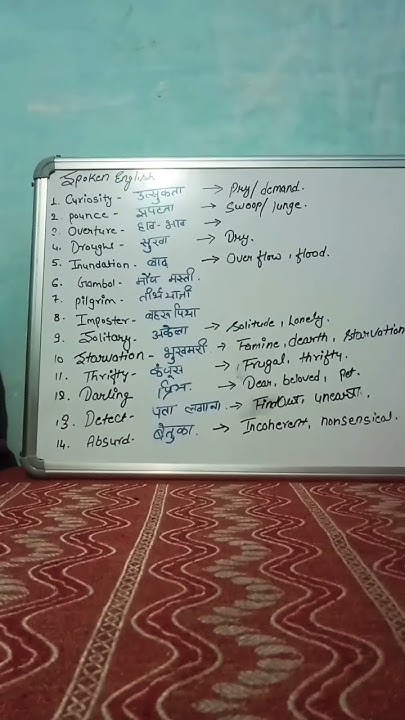 Spoken English
1. Curiosity - उत्सुकता → Pry/demand.
2 pounce - झपटना → Swoop/lunge.
3. Overture - हाव-भाव →
4. Drought - सुखा → Dry.
5. Inundation - बाढ़ → Overflow, flood.
6. Gambol - मौज मस्ती.
7. pilgrim - तीर्थयात्री
8. Imposter - बहरूपिया
9. Solitary. अकेला → Solitude, Lonely.
10 Starvation - भुखमरी → Famine, dearth, starvation
11. Thrifty - कंजूस → Frugal, thrifty.
12. Darling प्रिय. → Dear, beloved, pet.
13. Detect - पता लगाना → FindOut, unearth.
14. Absurd. बेतुका. → Incoherent, nonsensical.